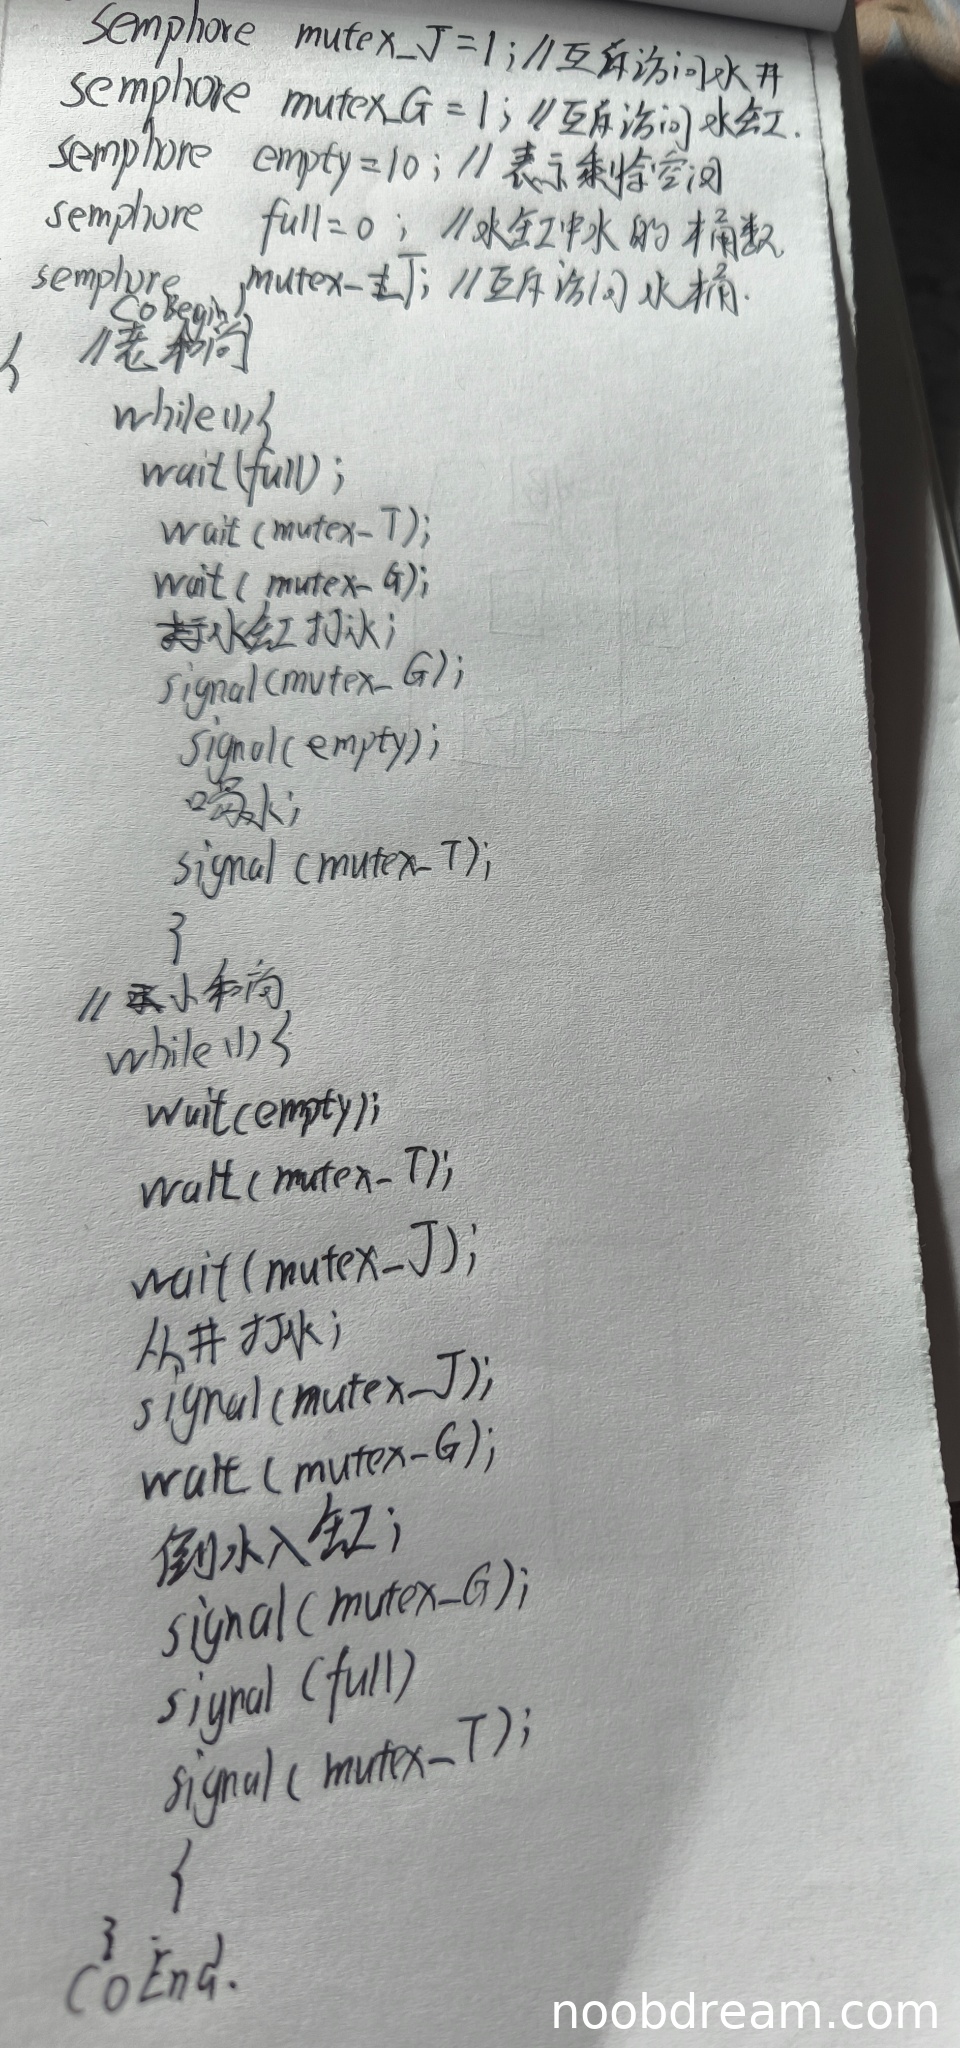 semphore mutex_J=1;//互斥访问水井
semphore mutex_G=1;//互斥访问水缸.
semphore empty=10;//表示剩馀空间
semphore full=0;//水缸中水的桶数
semphore mutex_T;//互斥访问水桶.
CoBegin
{ //老和尚
while(1){
wait(full);
wait(mutex_T);
wait(mutex_G);
水缸打水;
signal(mutex_G);
signal(empty);
喝水;
signal(mutex_T);
}
//小和尚
while(1){
wait(empty);
wait(mutex_T);
wait(mutex_J);
从井打水;
signal(mutex_J);
wait(mutex_G);
倒水入缸;
signal(mutex_G);
signal(full)
signal(mutex_T);
{
}
CoEnd.
noobdream.com